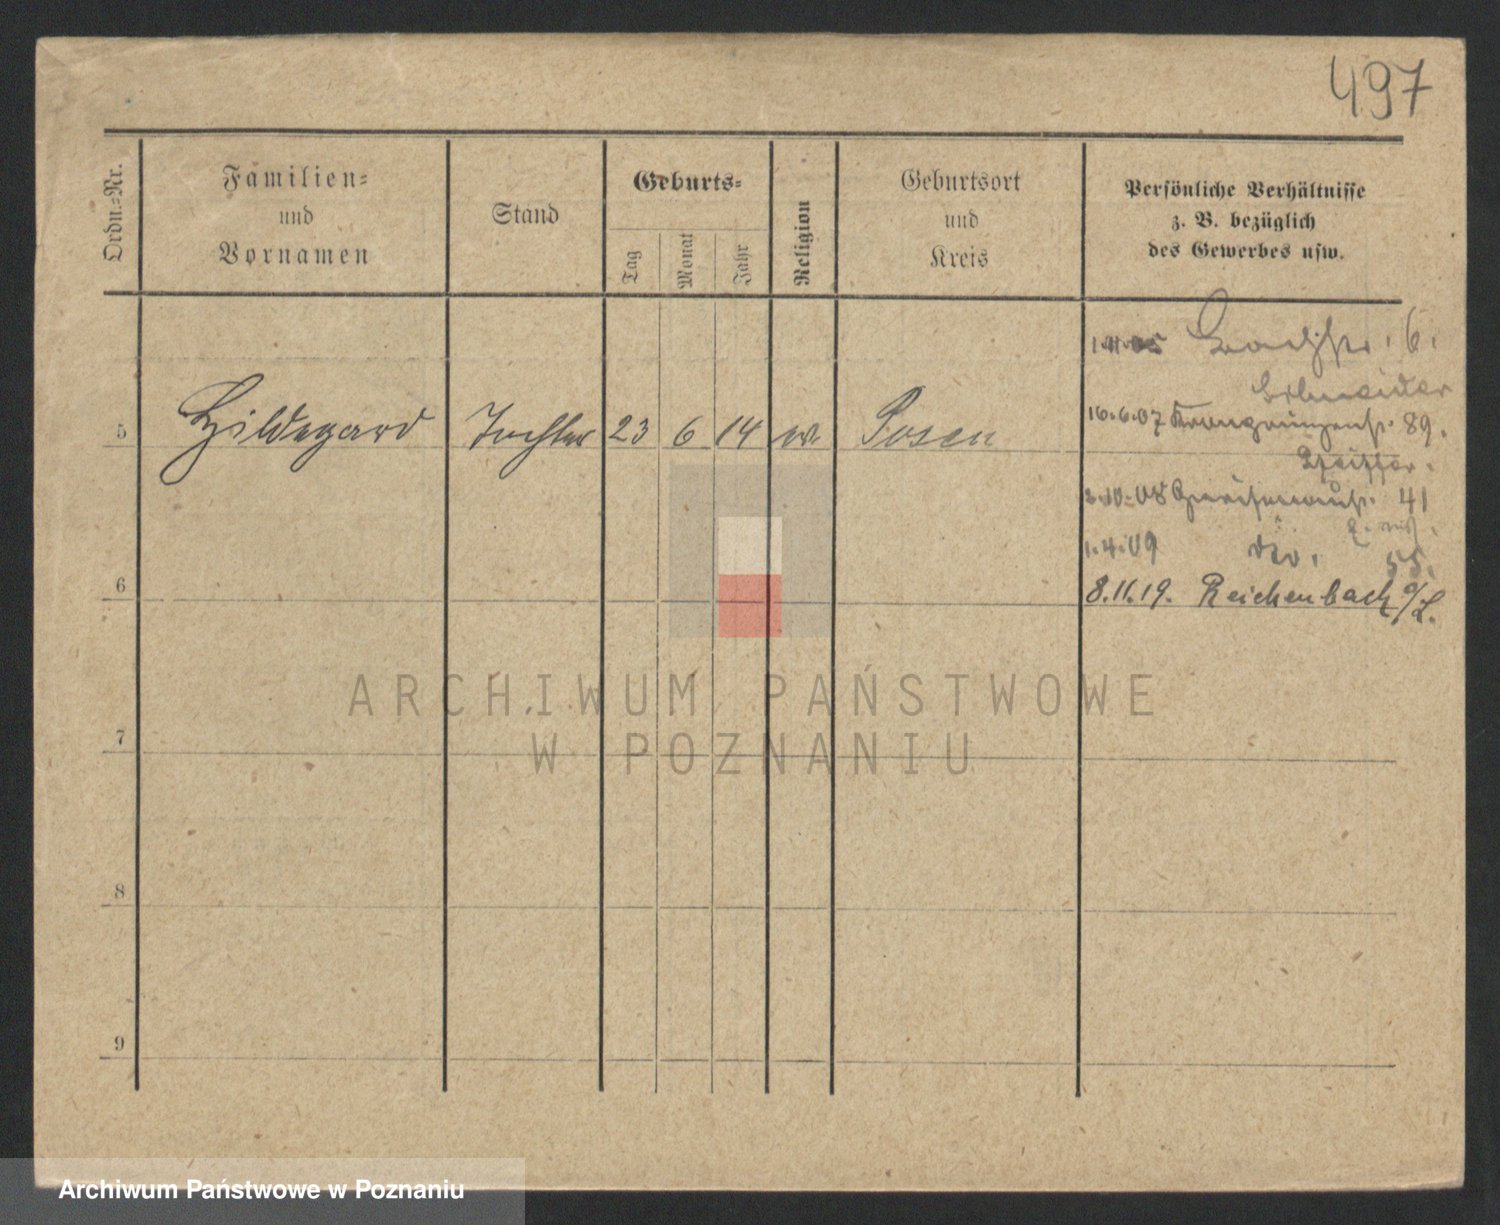 497
Ordn.-Nr.
Familien-
und
Vornamen
Stand
Geburts-
Tag
Monat
Jahr
Religion
Geburtsort
und
Kreis
Persönliche Verhältnisse
z. B. bezüglich
des Gewerbes usw.
6.
Schneider
5 Hildegard Tochter 23 6 14 Posen
16.6.07 89.
08 41
1.4.09 55.
6
8.11.19. Reichenbach o/L.
ARCHIWUM PAŃSTWOWE
W POZNANIU
7
8
9
Archiwum Państwowe w Poznaniu